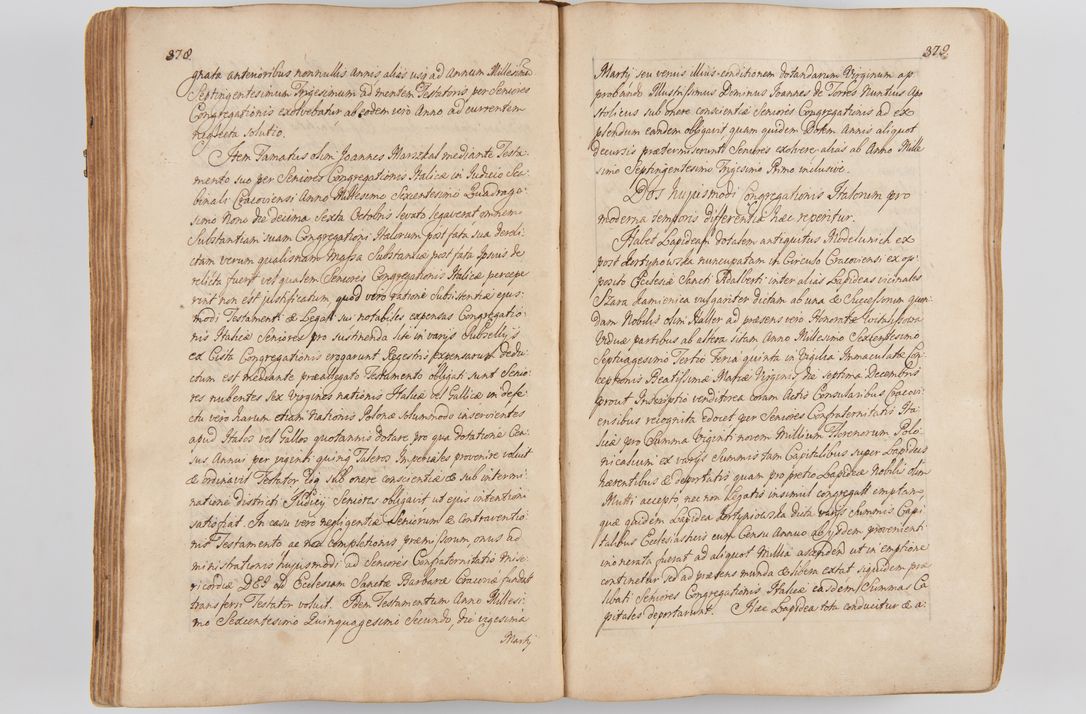 378.
gnata anterioribus nonnullis Annis alias usq ad Annum Millesimũ
Septingentesimum Trigesimum ad mentem Testatoris per Seniores
Congregationis exolvebatur ab eodem vero Anno ad currentem
neglecta solutio.
Item Famatus olim Joannes Marzekal mediante Testa-
mento suo per Seniores Congregationis Italicæ in Judicio Sca-
binali Cracoviensi Anno Millesimo Sexcentesimo Quadrage-
simo Nono die decima Sexta Octobris levato legaverat omnem
Substantiam suam Congregationi Italorum post fata sua dereli-
ctam verum qualisnam Massa Substantiæ post fata Ipsius de
relicta fuerit vel qualem Seniores Congregationis Italicæ percepe-
rint non est justificatum, quod vero ratione Subsistentiæ ejus-
modi Testamenti & Legati sui notabiles expensas Congregatio-
nis Italicæ Seniores pro sustinenda lite in varijs Subsellijs
ex Cista Congregationis erogarunt Regestris expensarum dedu-
ctum est mediante præallegato Testamento obligati sunt Senio-
res nubentes Sex Virgines nationis Italicæ vel Gallicæ in defe-
ctu vero harum etiam Nationis Polonæ solummodo inservientes
apud Italos vel Gallos quotannis dotare pro qua dotatione Cen-
sus Annui per viginti quinq Taleros Imperiales provenire voluit
& ordinavit Testator idq sub onere conscientiæ & sub intermi-
natione districti Judicij Seniores obligavit ut ejus intentioni
satisfiat. In casu vero negligentiæ Seniorum & contraventio-
nis Testamento ac non completionis præmissorum onus ad
ministrationis hujusmodi ad Seniores Confraternitatis Mise-
ricordiæ DEI ad Ecclesiam Sanctæ Barbaræ Cracoviæ fundat
transferri Testator voluit. Idem Testamentum Anno Millesi-
mo Sexcentesimo Quinquagesimo Secundo, die vigesima
Martij
379.
Martij seu verius illius conditionem dotandarum Virginum ap
probando Illustrissimus Dominus Joannes de Torres Nuntius Apo
stolicus sub onere conscientiæ Seniores Congregationis ad ex
plendum eandem obligavit quam quidem Dotem Annis aliquot
decursis prætermiserunt Seniores exolvere alias ab Anno Mille
simo Septingentesimo Trigesimo Primo inclusive.
Dos hujusmodi Congregationis Italorum pro
moderna temporis differentia hæc reperitur.
Habet Lapideam dotalem antiquitus ex
post nuncupatam in Circulo Cracoviensi ex op
posito Ecclesiæ Sancti Adalberti inter alias Lapideas vicinales
Szara kamienica vulgariter dictam ab una & Successorum quon
dam Nobilis olim Haller ad præsens vero Honoratæ
Viduæ partibus ab altera sitam Anno Millesimo Sexcentesimo
Septuagesimo Tertio Feria quinta in Vigilia Immaculatæ Con
ceptionis Beatissimæ Mariæ Virginis die septima Decembris
prout Inscriptio venditorea coram Actis Consularibus Cracovi
ensibus recognita edocet per Seniores Confraternitatis Ita
licæ pro Summa Viginti novem Millium Florenorum Polo
nicalium ex varijs Summis tam Capitalibus super Lapidea
hærentibus & deportatis quam pro pretio Lapideæ Nobilis olim
Mutti accepto nec non Legatis insimul congregatis emptam,
quæ quidem Lapidea dicta varijs Summis Capi
talibus Ecclesiasticis cum Censu Annuo ab ijsdem provenienti
innonerata fuerat ad aliquot Millia ascendens ut in emptione
continetur sed ad præsens munda & libera extat siquidem præ
libati Seniores Congregationis Italicæ easdem Summas Ca
pitales deportarunt. Hæc Lapidea tota conducitur & a: